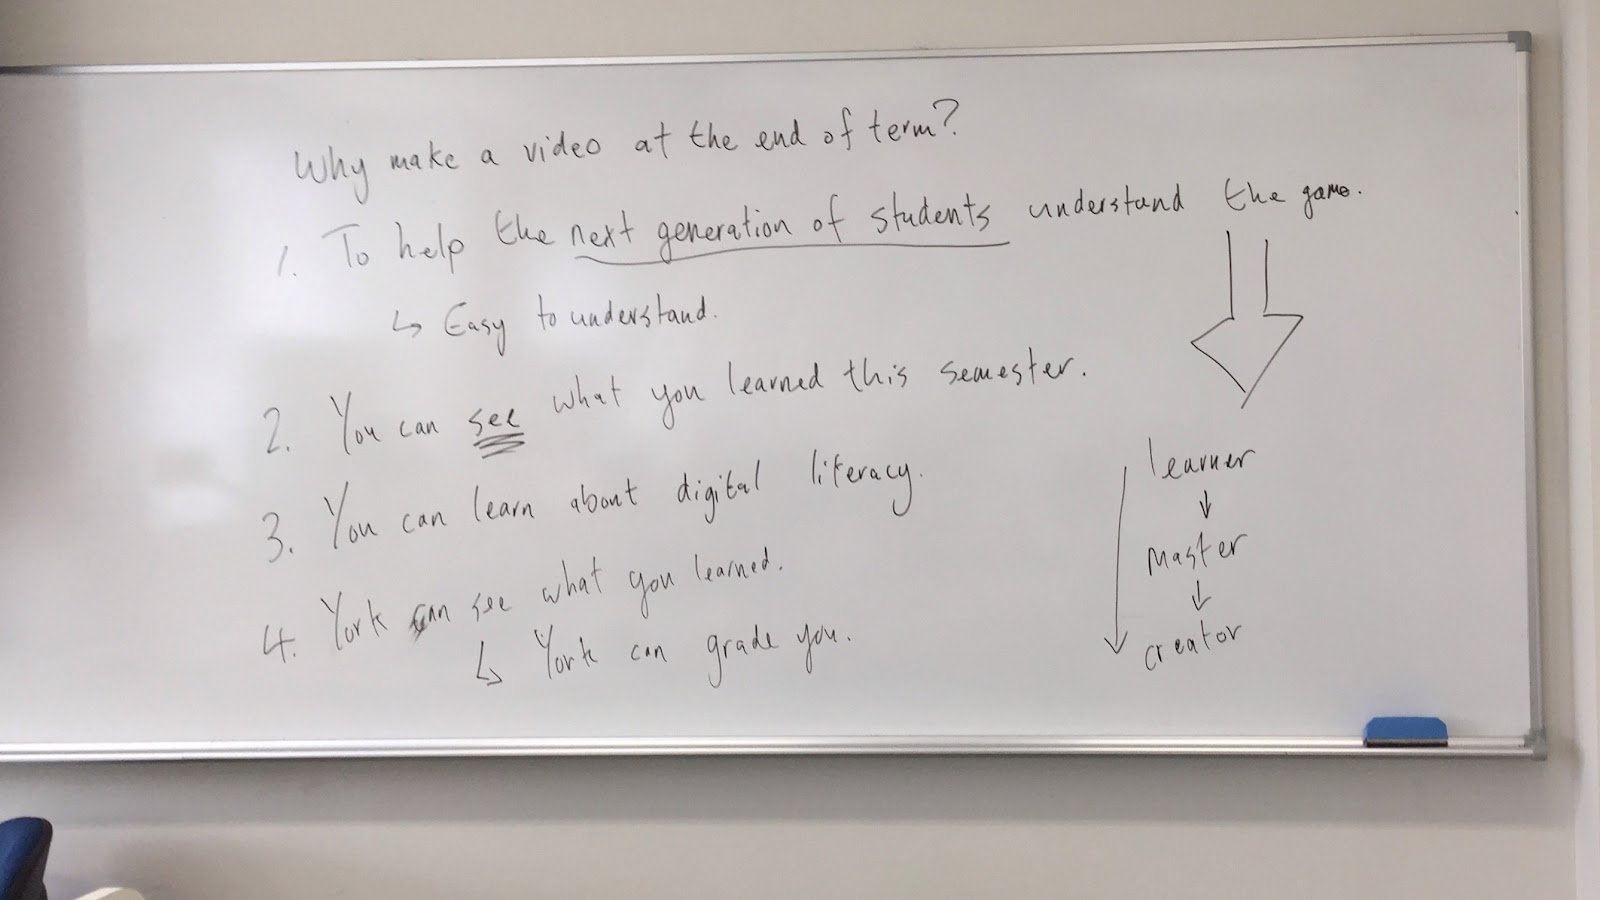 Why make a video at the end of term?
1. To help the next generation of students understand the game.
↳ Easy to understand.
2. You can see what you learned this semester.
3. You can learn about digital literacy.
4. York can see what you learned.
↳ York can grade you.
learner
↓
Master
↓
creator